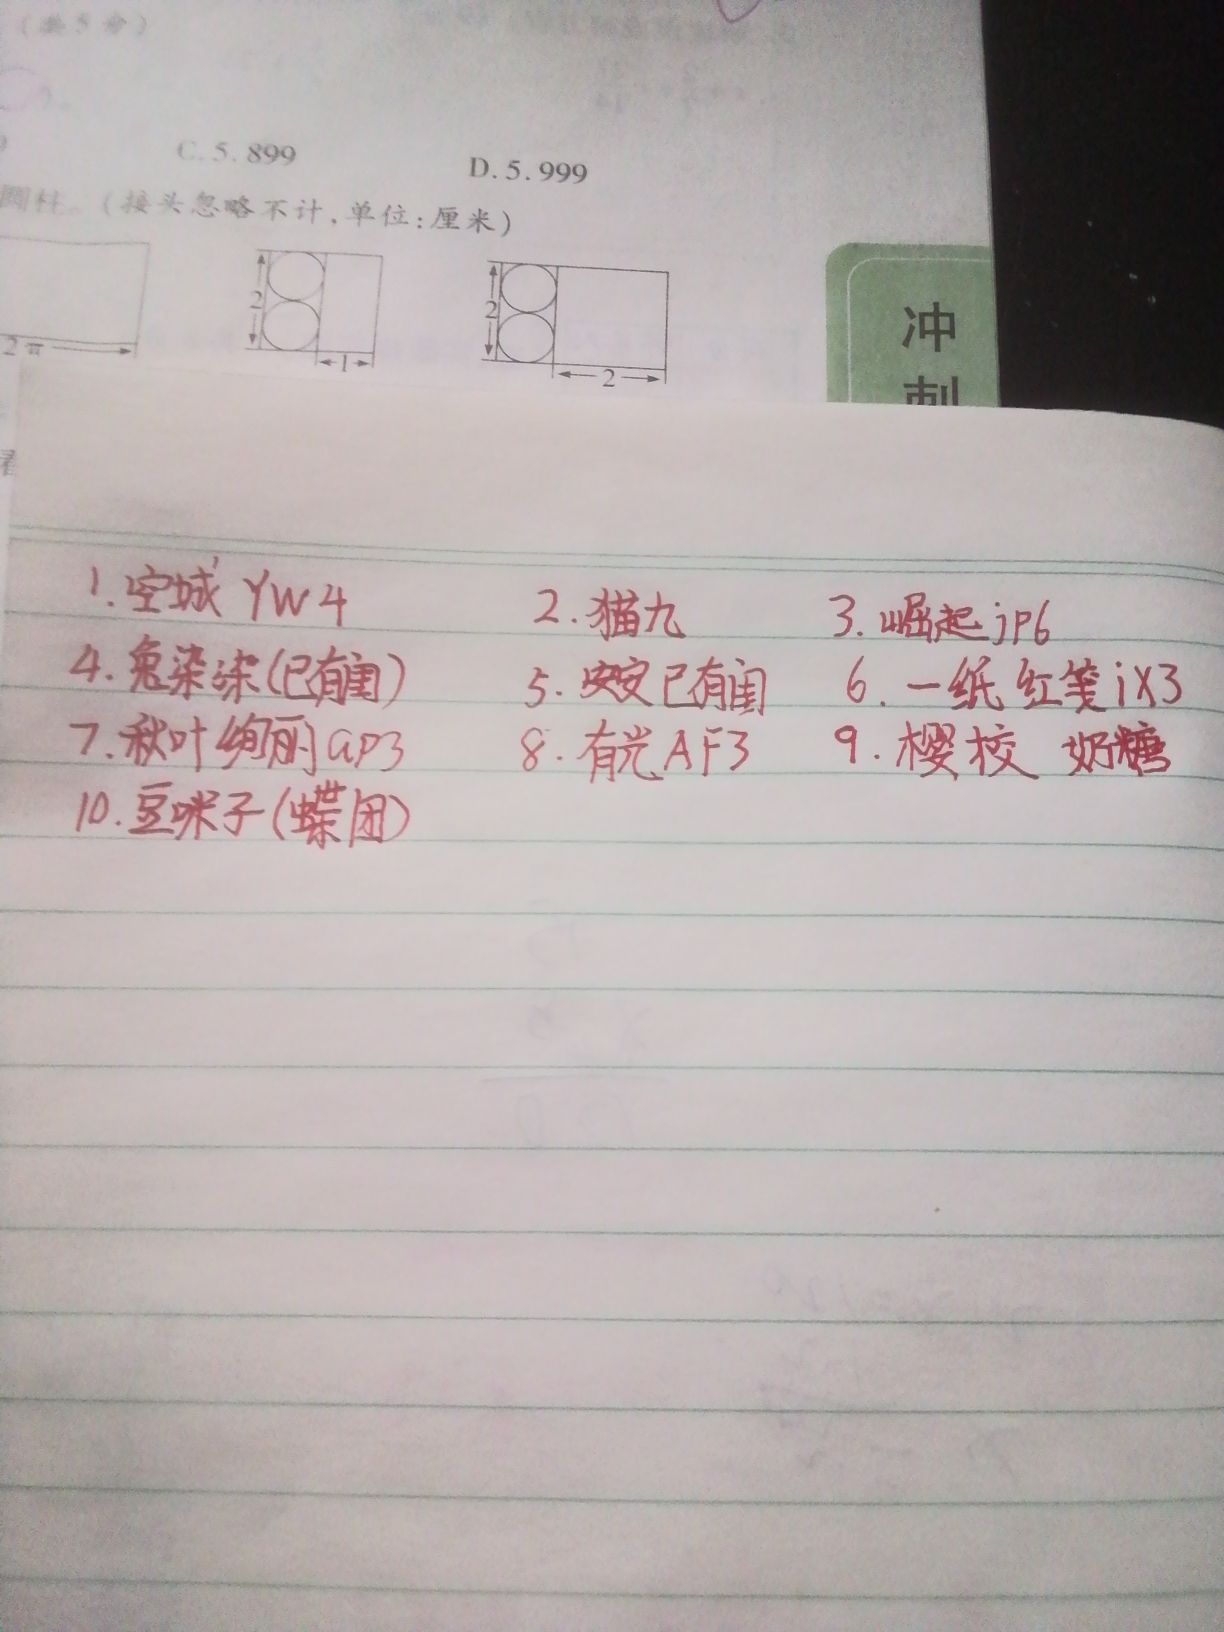 (共5分)
C. 5.899
D. 5.999
圆柱。(接头忽略不计,单位:厘米)
2
2
2π
1
2
冲
刺
1. 空城 YW4 2. 猫九 3. 崛起jp6
4. 兔染染(已有闺) 5. 安安已有闺 6. 一纸红笺iX3
7. 秋叶绚丽ap3 8. 有光AF3 9. 樱校 奶糖
10. 豆咪子(蝶团)